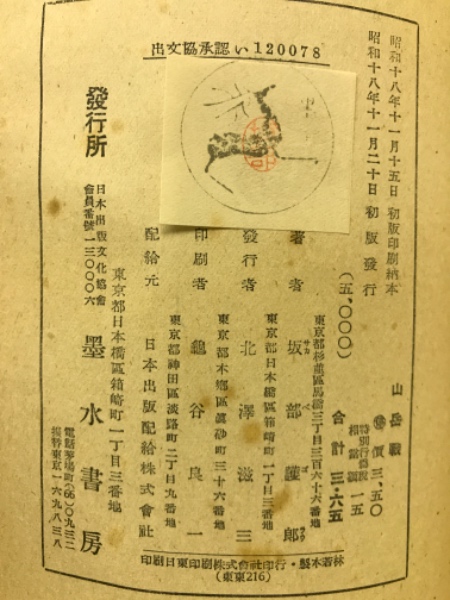 出文協承認い120078
昭和十八年十一月十五日 初版印刷納本
昭和十八年十一月二十日 初版發行
(五、〇〇〇)
山岳戰
價 三・五〇
特別行爲税
相當額 一五
合計 三・六五
東京都杉並區馬橋三丁目三百六十六番地
著者 坂部護郎
東京都日本橋區箱崎町一丁目三番地
發行者 北澤滋三
東京都本郷區眞砂町三十六番地
印刷者 龜谷良一
東京都神田區淡路町二丁目九番地
配給元 日本出版配給株式會社
東京都日本橋區箱崎町一丁目三番地
發行所 墨水書房
日本出版文化協會
會員番號一三〇〇〇六
電話茅場町(66)〇九三二
振替東京一六九八三八
印刷日東印刷株式會社印行・製本若林
(東東216)